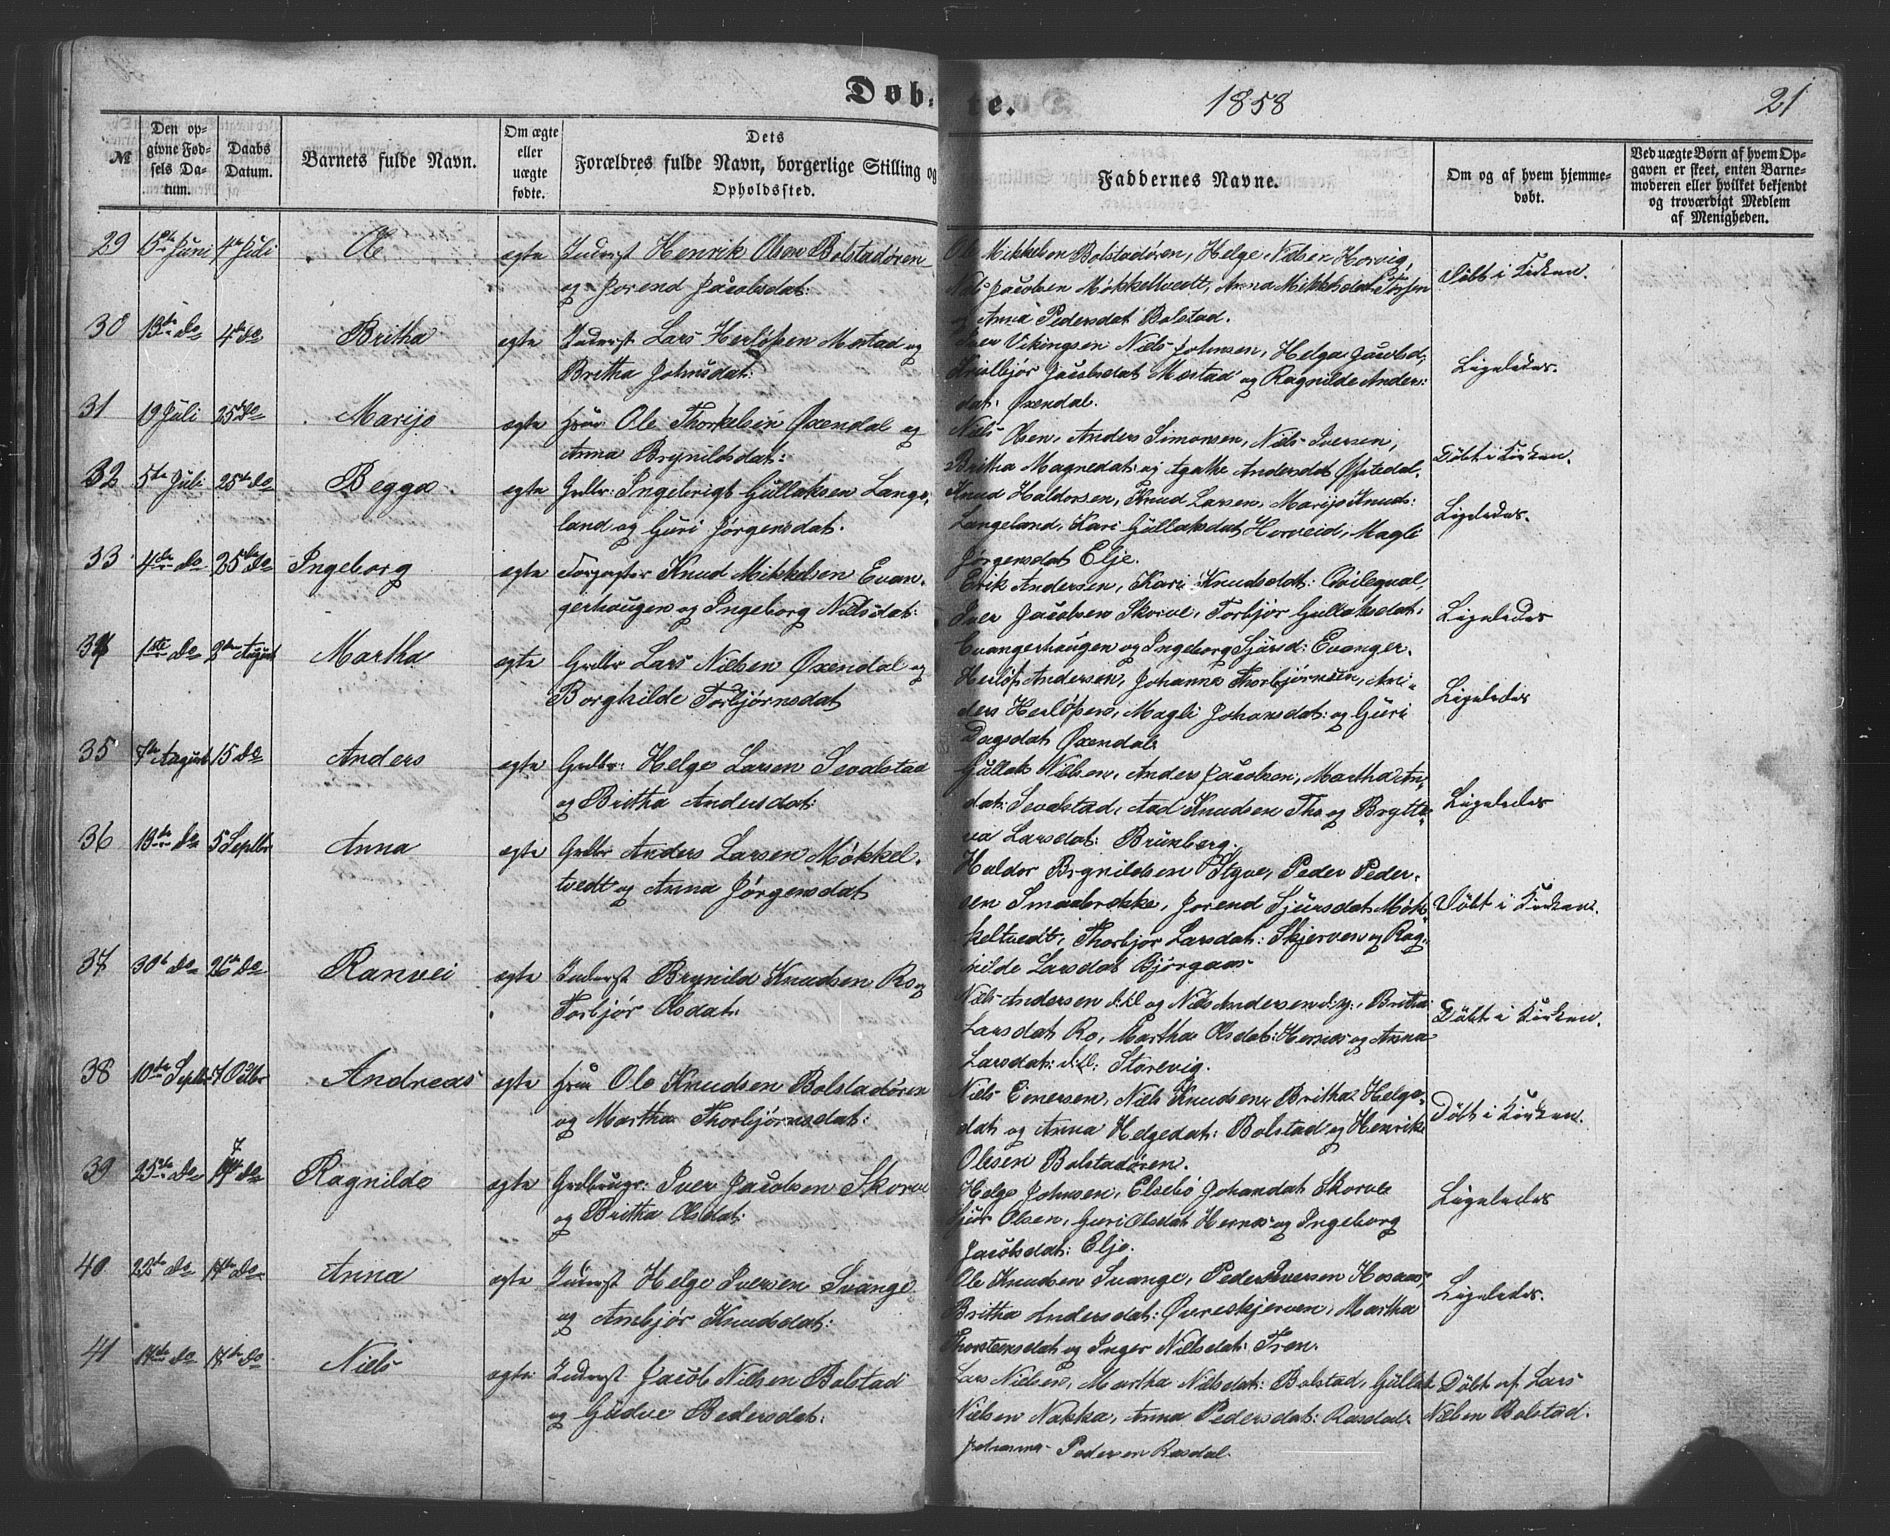 Døb- te. 1858 21
№ | Den opgivne Fødsels Datum. | Daabs Datum. | Barnets fulde Navn. | Om ægte eller uægte fødte. | Dets Forældres fulde Navn, borgerlige Stilling og Opholdssted. | Faddernes Navne. | Om og af hvem hjemmedøbt. | Ved uægte Børn af hvem Opgaven er skeet, enten Barnemoderen eller hvilket bekjendt og troværdigt Medlem af Menigheden.
29 Juni 4de Juli Ole ægte Inderst Henrik Olsen Bolstadøren
og Jorend Jacobsdat:
Ole Mikkelsen Bolstadøren, Helge Nielsen Horvig,
Niels Jacobsen Møkkeltvedt, Anna Mikkelsdat
og Anna Pedersdat Bolstad.
Døbt i Kirken.
30 13de do 4de do Britha ægte Inderst Lars Herløfsen Mestad og
Britha Johnsdat:
Iver Vikingsen Niels Johnsen, Helga Jacobsd:
Kristbjør Jacobsdat Mestad og Ragnilde Anders:
dat: Øxendal.
Ligeledes.
31 19 Juli 25de do Marijo ægte Huus Ole Thorkelsen Øxendal og
Anna Brynildsdat:
Niels Olsen, Anders Simonsen, Niels Iversen,
Britha Magnedat: og Agathe Andersdat
Døbt i Kirken.
32 5te Juli 25de do Begga ægte Grdbr: Ingebrigt Gullaksen Lange-
land og Guri Jørgensdat.
Knud Haldorsen, Knud Larsen, Marijo Knuds:
Langeland, Kari Gullaksdat Horveid, Magli
Jørgensdat Elje.
Ligeledes.
33 4de do 25de do Ingeborg ægte Forpagter Knud Mikkelsen Evan-
gerhaugen og Ingeborg Nielsdat:
Erik Andersen, Kari Knudsdat:
Iver Jacobsen Skorve, Torbjør Gullaksdat:
Evangerhaugen og Ingeborg Sjursd: Evanger.
Ligeledes
34 1ste do 2den August Martha ægte Grdbr Lars Nielsen Øxendal og
Borghilde Torbjørnsdat
Herløf Andersen, Johannes Thorbjørnsen, An-
ders Herløfsen, Magli Johansdat: og Guri
Dagsdat Øxendal
Ligeledes
35 7de August 15 do Anders ægte Grdbr: Helge Larsen Sevalstad
og Britha Andersdat:
Gullak Nielsen, Anders Jacobsen, Martha An-
dat: Sevalstad, Aad Knudsen Tho og Brytte-
va Larsdat: Brunberg.
Ligeledes
36 do 5 Septbr Anna ægte Grdbr Anders Larsen Møkkel-
tvedt og Anna Jørgensdat
Haldor Brynildsen Styve, Peder Peder-
sen Smaabrekke, Jorend Sjursdat Møk-
keltvedt, Thorbjør Larsdat: Skjerven og Rag-
nilde Larsdat Bjørgaas
Døbt i Kirken.
37 30te do 26de do Ranvei ægte Inderst Brynild Knudsen Ro og
Torbjør Olsdat:
Niels Andersen og Niels Andersen, Britha
Larsdat Ro, Martha Olsdat: Hernes og Anna
Larsdat: Storevig.
Døbt i Kirken.
38 10de Septbr Octbr Andreas ægte Huus Ole Knudsen Bolstadøren
og Martha Thorbjørnsdat:
Niels Einersen, Niels Knudsen, Britha Helge-
dat og Anna Helgedat: Bolstad og Henrik
Olsen Bolstadøren.
Døbt i Kirken.
39 25de do do Ragnilde ægte Grdbrugr: Iver Jacobsen Skorve
og Britha Olsdat:
Helge Johnsen, Elsebø Johandat Skorve
Sjur Olsen, Guri Olsdat Hernes og Ingeborg
Jacobsdat: Elje.
Ligeledes
40 22de do 17de do Anna ægte Inderst Helge Iversen Svange
og Ambjør Knudsdat:
Ole Knudsen Svange, Peder Iversen Hosaas,
Britha Andersdat: Øvreskjerven, Martha
Thorsteensdat og Inger Nielsdat: Fren.
Ligeledes.
41 14de do do Niels ægte Inderst Jacob Nielsen Bolstad
og Gudve Pedersdat:
Lars Nielsen, Martha Nielsdat: Bolstad, Gullak
Nielsen Nakka, Anna Pedersdat: Rasdal
Johannes Pedersen Rasdal
Døbt af Lars
Nielsen Bolstad.